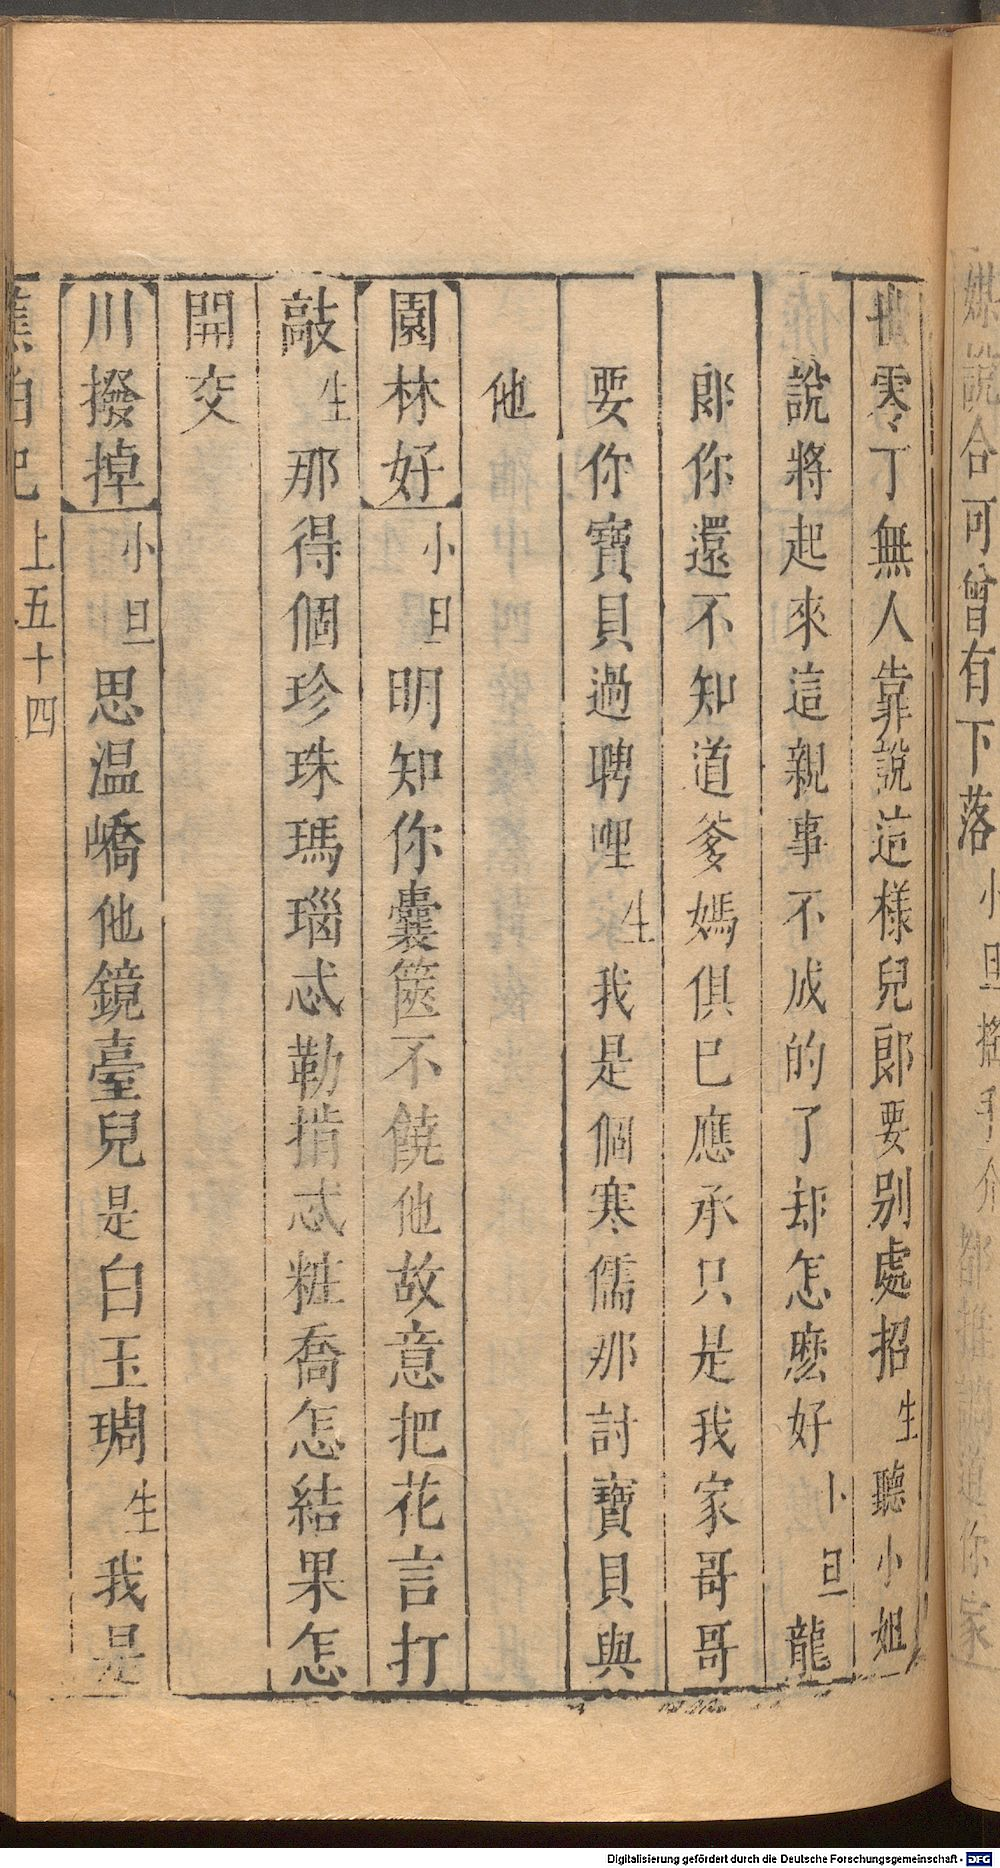 媒說合可曾有下落小旦搖手介都推調道你家
世零丁無人靠說這樣兒郎要别處招生聽小姐
說將起來這親事不成的了却怎麽好小旦龍
郎你還不知道爹媽俱已應承只是我家哥哥
要你寶貝過聘哩生我是個寒儒那討寶貝與
他
園林好小旦明知你囊篋不饒他故意把花言打
敲生那得個珍珠瑪瑙忒勒掯忒粧喬怎結果怎
開交
川撥掉小旦思温嶠他鏡臺兒是白玉琱生我是
蕉怕記 上五十四
Digitalisierung gefördert durch die Deutsche Forschungsgemeinschaft - DFG